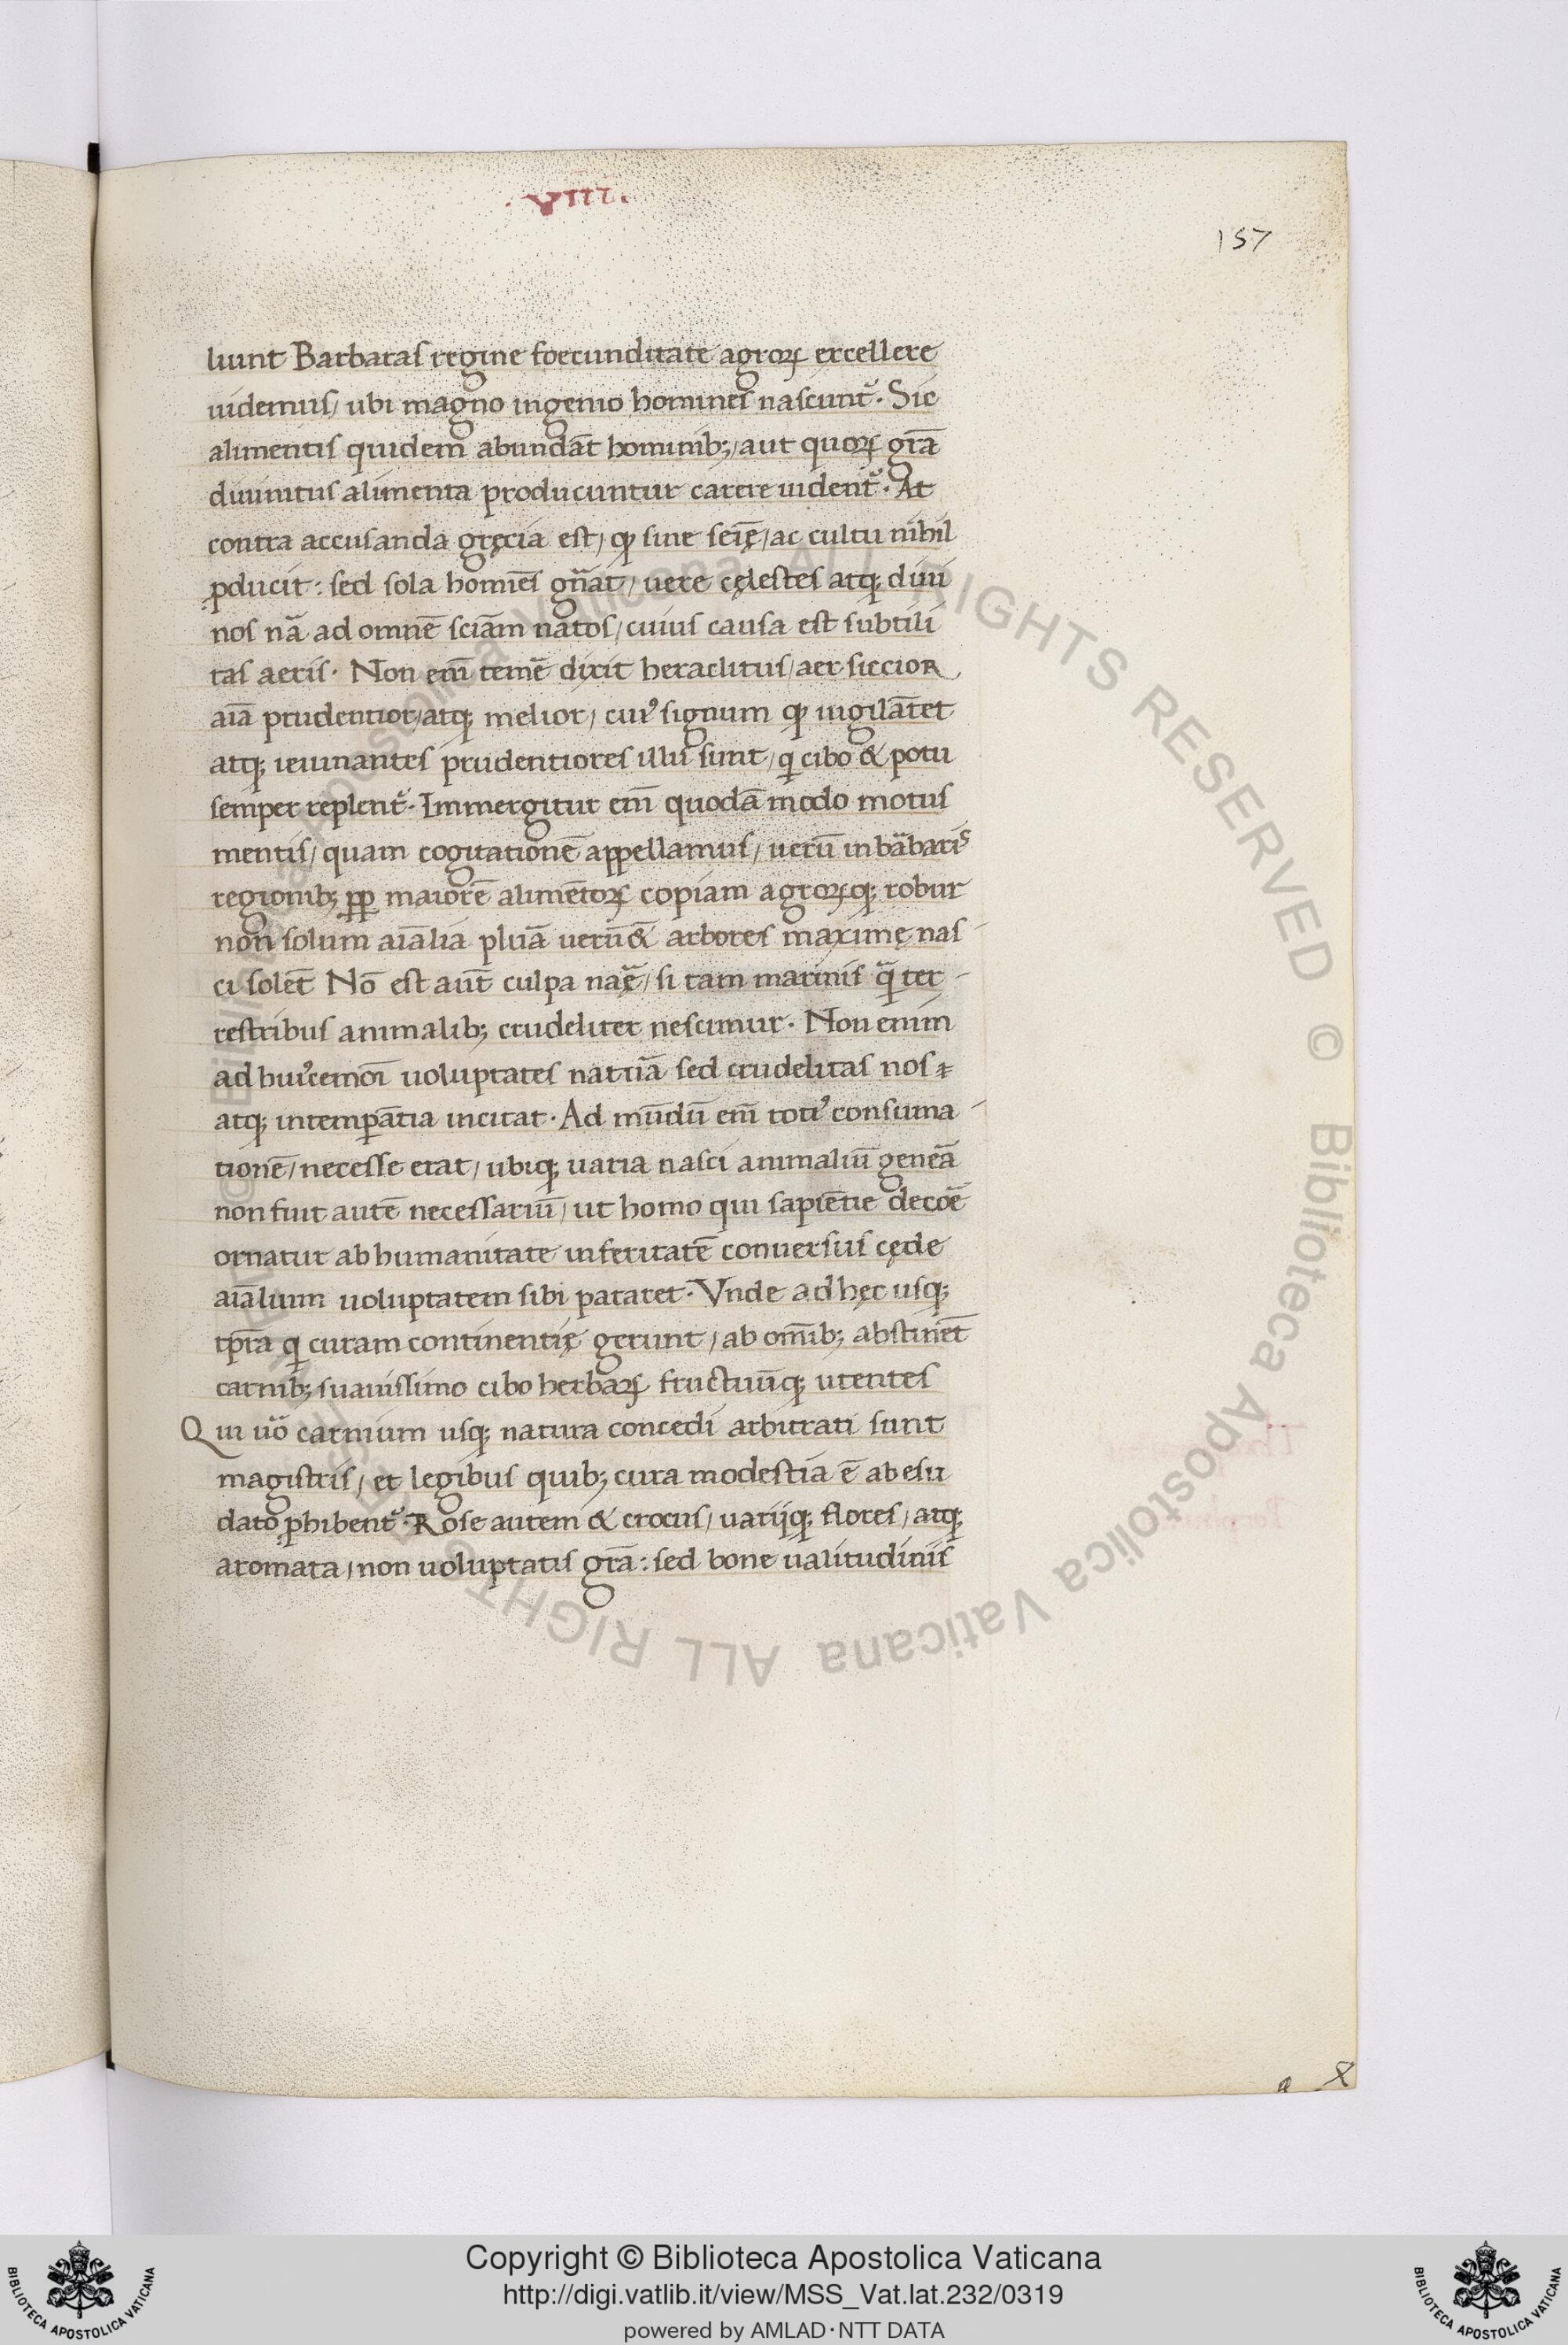 .VIII.
157
luunt Barbaras regine foecunditate agroꝝ excellere
uidemus/ ubi magno ingenio homines nascunt᷑. Sic
alimentis quidem abundāt hominib;/ aut quoꝝ grā
diuinitus alimenta producuntur carere uident᷑. At
contra accusanda gręcia est/ ꝙ sine seīę/ ac cultu nihil
ꝓducit: sed sola homīes gn̄at/ uere cęlestes atq; diui
nos nā ad omnē sciām natos/ cuius causa est subtili
tas aeris. Non em̄ temē dixit heraclitus/ aer siccior
aīa prudentior/ atq; melior/ cuiꝰ signum ꝙ uigilātet
atq; ieiunantes prudentiores illis sunt/ qͥ cibo & potu
semper replent᷑. Immergitur em̄ quodā modo motus
mentis/ quam cogitationē appellamus/ uerū in barbaris
regionib; ꝓp maiorē alimētoꝝ copiam agroꝝq; robur
non solum aīalia pluā uerū& arbores maximę nas-
ci solēt Nō est aūt culpa naę/ si tam marinis qͣ ter-
restribus animalib; crudeliter nescimur. Non enim
ad huiꝰcemōi uoluptates nattiā sed crudelitas nos-
atq; intemꝑātia incitat. Ad mūdū em̄ totiꝰ consuma-
tionē/ necesse erat/ ubiq; uaria nasci animaliū geneā
non fuit autē necessariū/ ut homo qui sapiētie decoē
ornatur ab humanitate in feritatē conuersus cęde
aīalium uoluptatem sibi pararet. Vnde ad hęc usq;
tꝑra qͥ curam continentię gerunt/ ab omīb; abstinēt
carnib; suauissimo cibo herbaꝝ fructuūq; utentes
Qui uō carnium usq; natura concedi arbitrati sunt
magistris/ et legibus quib; cura modestia ē ab esu
dato ꝓhibent᷑. Rose autem & crocus/ uarijq; flores/ atq;
aromata/ non uoluptatis grā: sed bone ualitudinis
© Biblioteca Apostolica Vaticana ALL RIGHTS RESERVED © Biblioteca Apostolica Vaticana ALL RIGHTS RESERVED
Copyright © Biblioteca Apostolica Vaticana
http://digi.vatlib.it/view/MSS_Vat.lat.232/0319
powered by AMLAD·NTT DATA
BIBLIOTECA APOSTOLICA VATICANA
BIBLIOTECA APOSTOLICA VATICANA